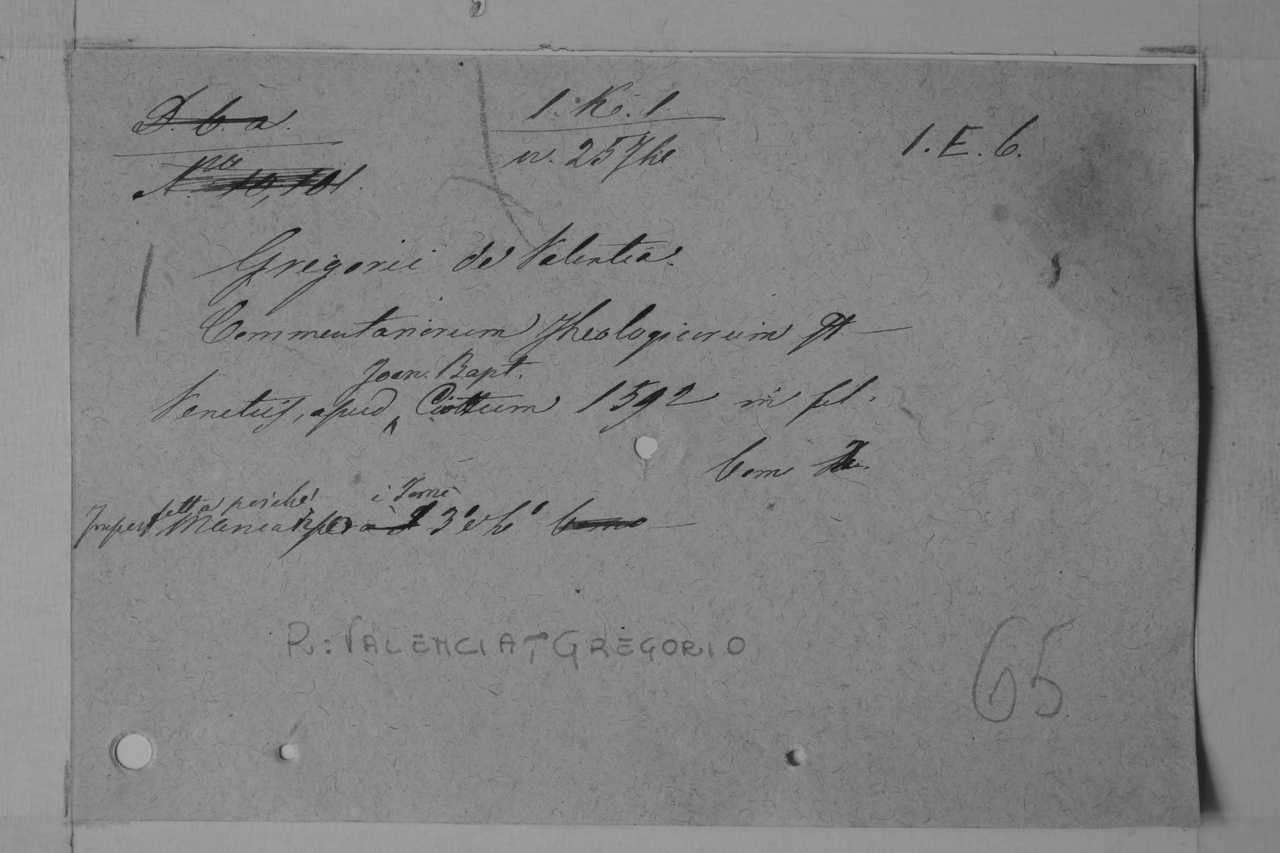 D. b. a. 1. K. 1 1. E. 6.
N.ro 10,101. n. 25
Gregorii de Valentia.
Commentariorum Theologicorum
Joan. Bapt.
Venetiis, apud Ciottum 1592 in fol.
Tom
fetta perchè i Tomi
Imper Manca 3° e 4° Tomo
R: VALENCIA, GREGORIO
65